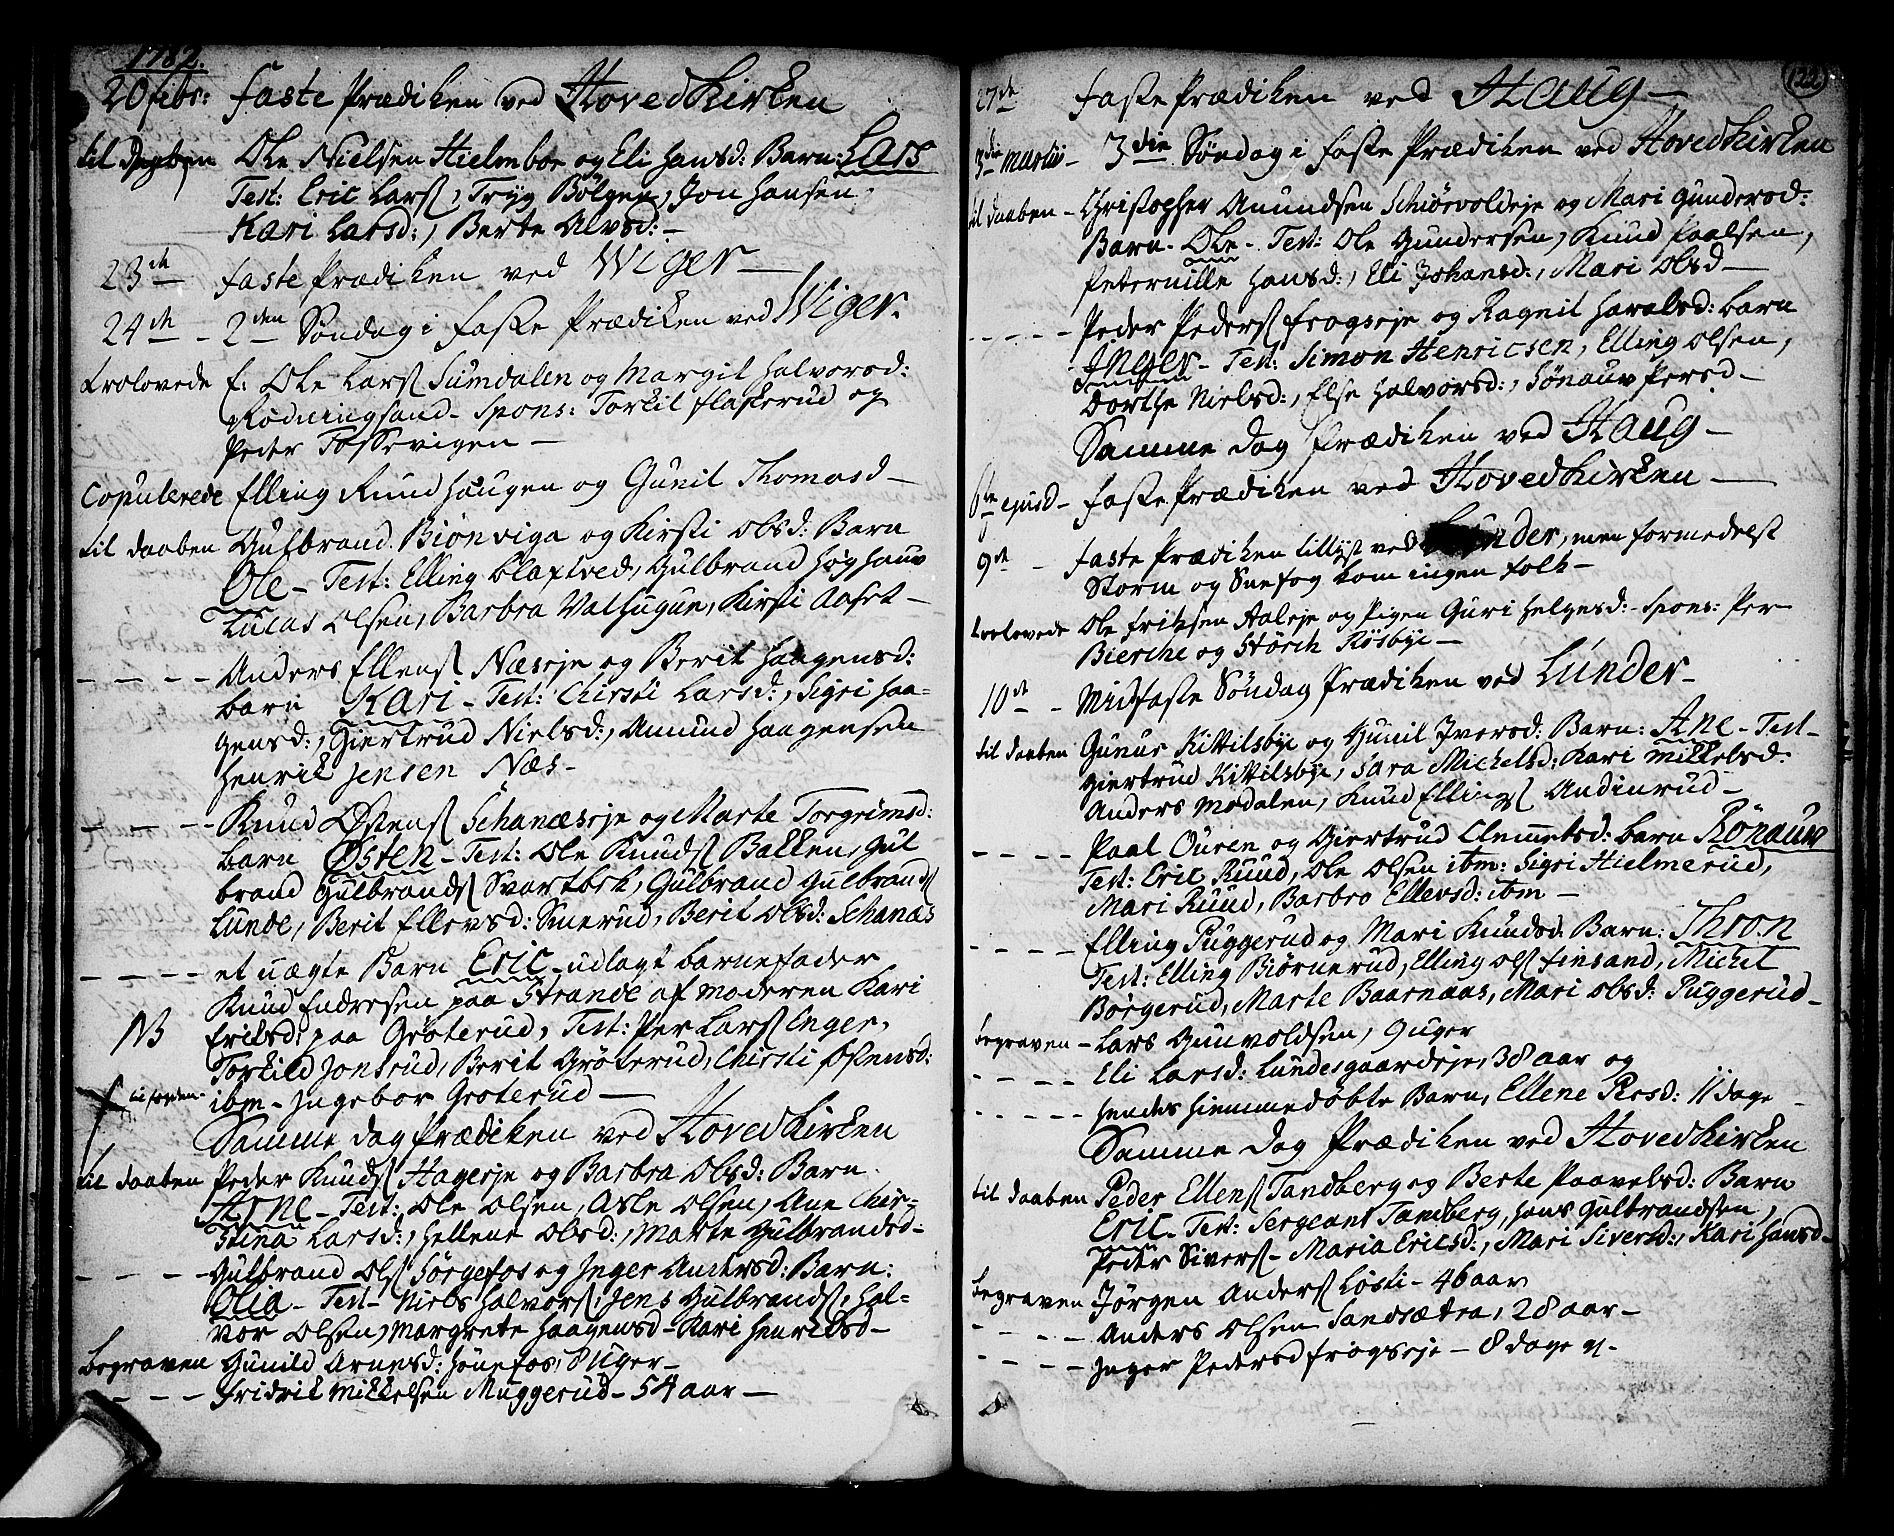 1782.
20 febr: Faste Prædiken ved Hovedkirken
til Daaben Ole Nielsen Hielmboe og Eli Hansd: Barn: Lars
Test: Eric Larsß, Tryg Bölgen, Jon Hansen,
Kari Larsd:, Berte Alvsd:-
23de Faste Prædiken ved Wiger-
24de - 2den Søndag i Faste Prædiken ved Wiger.
trolovede E: Ole Larsß Sumdalen og Margit Halvorsd:
Rødningsand- Spons: Torkil Flaskerud og
Peder Tossevigen-
Copulerede Elling Rund Haugen og Gunil Thomasd-
til daaben Gulbrand Biönviga og Kirsti Olsd: Barn
Ole- Test: Elling Olastved, Gulbrand Høghauv
Lucas Olsen, Barbra Valhugun, Kirsti Aaset-
- - - - Anders Ellensß Næseje og Berit Haagensd:
barn Kari- Test: Chirsti Larsd:, Sigri Haa-
gensd:, Giertrud Nielsd:, Amund Haagensen
Henrik Jensen Næs-
- - - - Knud Østensß Schanæseje og Marte Torgrimsd:
barn Østen- Test: Ole Knudsß Bakken, Gul
brand Gulbrandsß Svartbek, Gulbrand Gulbrandsß
Lunde, Berit Ellevsd: Smerud, Berit Olsd: Schanæs
- - - - et uægte Barn Eric- udlagt barnefader
Knud Endresen paa Strande af moderen Kari
NB Erilsd: paa Gröterud, Test: Per Larsß Enger,
Torkild Jonsrud, Berit Gröterud, Chirsti Østensd:
ibm- Ingebor Gröterud-
Samme dag Prædiken ved Hovedkirken
til daaben Peder Knudsß Hageeje og Barbra Olsd: Barn
Arne- Test: Ole Olsen, Asle Olsen, Ane Chir-
stina Larsd:, Hellene Olsd:, Marte Gulbrandsd-
- - - - Gulbrand Olsß Sörgefos og Inger Andersd: Barn:
Olia- Test- Niels Halvorsß, Jens Gulbrandsß, Hal-
vor Olsen, Margrete Haagensd- Kari Henrilsd-
begraven Gunild Arnesd: Hönefos, 8 uger-
- - - Fridrik Mikkelsen Muggerud- 54 aar-
122
27de Faste Prædiken ved Haug-
3die Martii- 3die Søndag i Faste Prædiken ved Hovedkirken
til daaben- Christopher Amundsen Schiörvoldeje og Mari Gundersd:
Barn- Ole- Test: Ole Gundersen, Knud Paalsen,
Peternille Hansd:, Eli Johansd:, Mari Olsd-
- - - - Peder Pedersß Frogseje og Ragnil Haralsd: barn
Inger- Test: Simon Henricsen, Elling Olsen,
Dorthe Nielsd:, Else Halvorsd:, Sönauv Persd-
Samme Dag Prædiken ved Haug-
6te ejusd- Faste Prædiken ved Hovedkirken-
9de - Faste Prædiken tillyst ved Lunder, men formedelst
Storm og Sneefog kom ingen folk-
trolovede Ole Eriksen Aaleje og Pigen Guri Helgesd:- Spons: Per
Bierche og Störch Rösbye-
10de - Midfaste Søndag Prædiken ved Lunder-
til daaben Gunur Kittilsbye og Gunil Iversd: Barn: Ane- Test-
Giertrud Kittilsbye, Sara Michelsd: Kari Mikkelsd:
Anders Modalen, Knud Ellingsß Andinrud-
- - - - Paal Ouren og Giertrud Clemmetsd: barn Rönauv
Test: Eric Ruud, Ole Olsen ibm: Sigri Hielmerud,
Mari Ruud, Barbro Ellevsd: ibm-
- - - - Elling Puggerud og Mari Knudsd: Barn: Thron
Test: Elling Biörnerud, Elling Olsß Finsand, Michel
Börgerud, Marte Baarnaas, Mari Olsd: Puggerud-
begraven- Lars Gunvoldsen, 9 uger
- - - - Eli Larsd: Lundesgaardeje, 38 aar og
- - - - - Hendes hiemmedöbte Barn, Ellene Persd: 11 dage -
Samme Dag Prædiken ved Hovedkirken
til daaben Peder Ellensß Tandberg og Berte Paavelsd: Barn
Eric- Test: Sergeant Tandberg, Hans Gulbrandsen,
Peder Siversß- Maria Ericsd:, Mari Siversd:, Kari Hansd-
begraven Jörgen Andersß Lösti- 46 aar
- - - - Anders Olsen Sandsætra, 28 aar-
- - - - Inger Pedersd Frogseje- 8 dage g.-